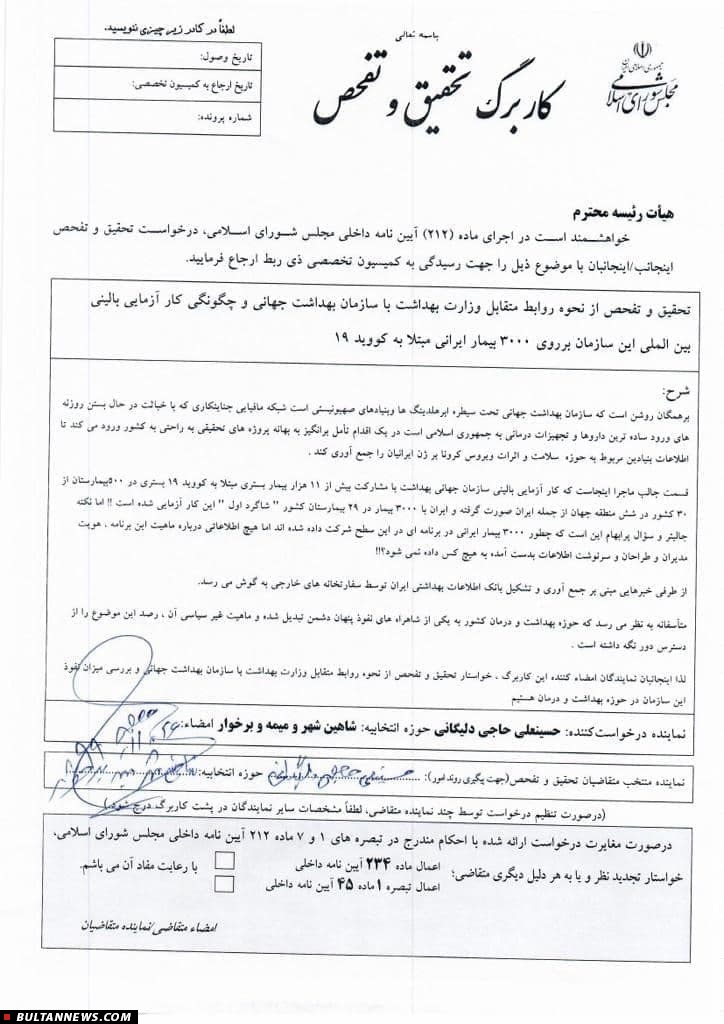 باسمه تعالی
جمهوری اسلامی ایران
مجلس شورای اسلامی
کاربرگ تحقیق و تفحص
لطفاً در کادر زیر چیزی ننویسید.
تاریخ وصول:
تاریخ ارجاع به کمیسیون تخصصی:
شماره پرونده:
هیأت رئیسه محترم
خواهشمند است در اجرای ماده (۲۱۲) آیین نامه داخلی مجلس شورای اسلامی، درخواست تحقیق و تفحص
اینجانب/اینجانبان با موضوع ذیل را جهت رسیدگی به کمیسیون تخصصی ذی ربط ارجاع فرمایید.
تحقیق و تفحص از نحوه روابط متقابل وزارت بهداشت با سازمان بهداشت جهانی و چگونگی کار آزمایی بالینی
بین المللی این سازمان برروی ۳۰۰۰ بیمار ایرانی مبتلا به کووید ۱۹
شرح:
برهمگان روشن است که سازمان بهداشت جهانی تحت سیطره ابرهلدینگ ها وبنیادهای صهیونیستی است شبکه مافیایی جنایتکاری که با خباثت در حال بستن روزنه
های ورود ساده ترین داروها و تجهیزات درمانی به جمهوری اسلامی است در یک اقدام تأمل برانگیز به بهانه پروژه های تحقیقی به راحتی به کشور ورود می کند تا
اطلاعات بنیادین مربوط به حوزه سلامت و اثرات ویروس کرونا بر ژن ایرانیان را جمع آوری کند .
قسمت جالب ماجرا اینجاست که کار آزمایی بالینی سازمان جهانی بهداشت با مشارکت بیش از ۱۱ هزار بیمار بستری مبتلا به کووید ۱۹ بستری در ۵۰۰بیمارستان از
۳۰ کشور در شش منطقه جهان از جمله ایران صورت گرفته و ایران با ۳۰۰۰ بیمار در ۲۹ بیمارستان کشور " شاگرد اول " این کار آزمایی شده است !! اما نکته
جالبتر و سؤال پرابهام این است که چطور ۳۰۰۰ بیمار ایرانی در برنامه ای در این سطح شرکت داده شده اند اما هیچ اطلاعاتی درباره ماهیت این برنامه ، هویت
مدیران و طراحان و سرنوشت اطلاعات بدست آمده به هیچ کس داده نمی شود؟!!
از طرفی خبرهایی مبنی بر جمع آوری و تشکیل بانک اطلاعات بهداشتی ایران توسط سفارتخانه های خارجی به گوش می رسد.
متأسفانه به نظر می رسد که حوزه بهداشت و درمان کشور به یکی از شاهراه های نفوذ پنهان دشمن تبدیل شده و ماهیت غیر سیاسی آن ، رصد این موضوع را از
دسترس دور نگه داشته است .
لذا اینجانبان نمایندگان امضاء کننده این کاربرگ ، خواستار تحقیق و تفحص از نحوه روابط متقابل وزارت بهداشت با سازمان بهداشت جهانی و بررسی میزان نفوذ
این سازمان در حوزه بهداشت و درمان هستیم
نماینده درخواست‌کننده: حسینعلی حاجی دلیگانی حوزه انتخابیه: شاهین شهر و میمه و برخوار امضاء:
نماینده منتخب متقاضیان تحقیق و تفحص(جهت پیگیری روند امور): حسینعلی حاجی دلیگانی حوزه انتخابیه:
(درصورت تنظیم درخواست توسط چند نماینده متقاضی، لطفاً مشخصات سایر نمایندگان در پشت کاربرگ درج شود.)
درصورت مغایرت درخواست ارائه شده با احکام مندرج در تبصره های ۱ و ۷ ماده ۲۱۲ آیین نامه داخلی مجلس شورای اسلامی،
خواستار تجدید نظر و یا به هر دلیل دیگری متقاضی؛
اعمال ماده ۲۳۴ آیین نامه داخلی
اعمال تبصره ۱ ماده ۴۵ آیین نامه داخلی
با رعایت مفاد آن می باشم.
امضاء متقاضی/نماینده متقاضیان
BULTANNEWS.COM